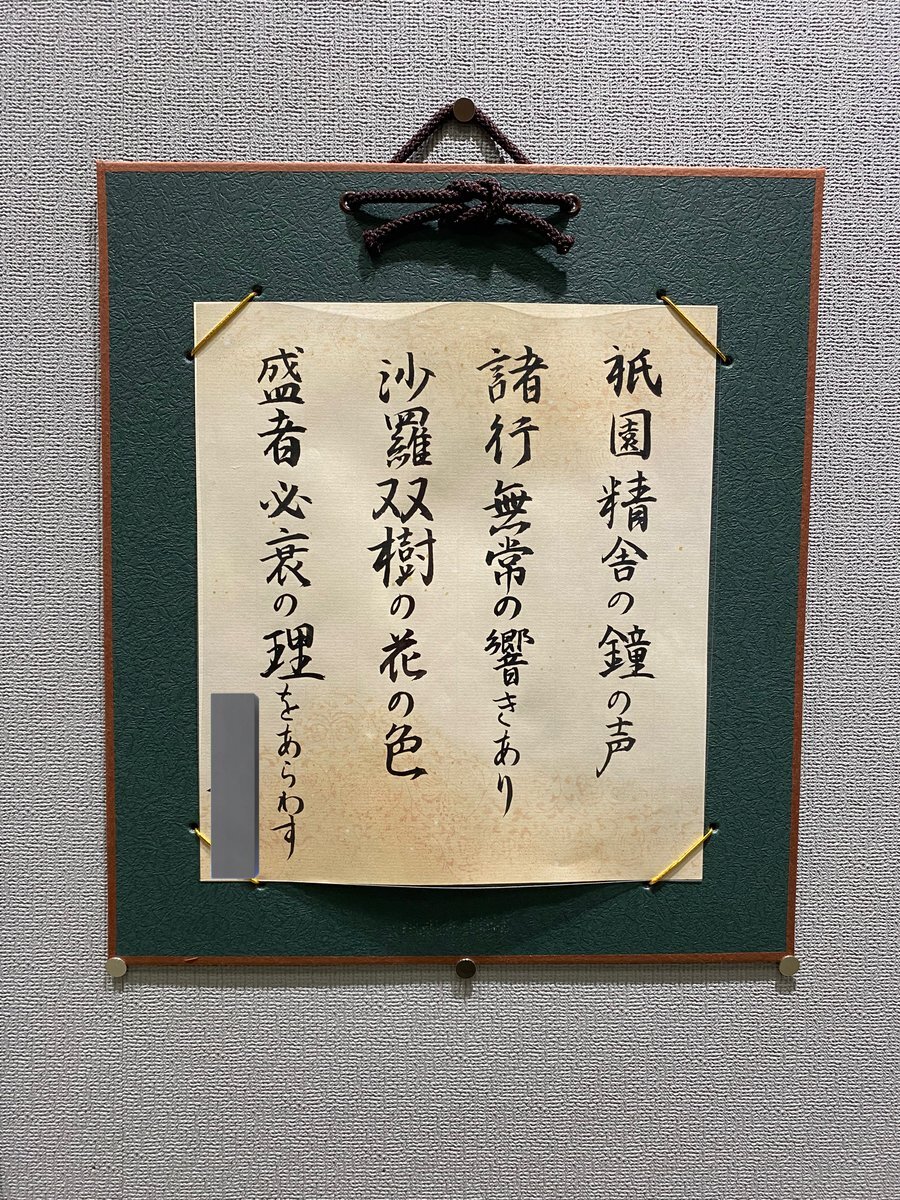 祇園精舎の鐘の声
諸行無常の響きあり
沙羅双樹の花の色
盛者必衰の理をあらわす